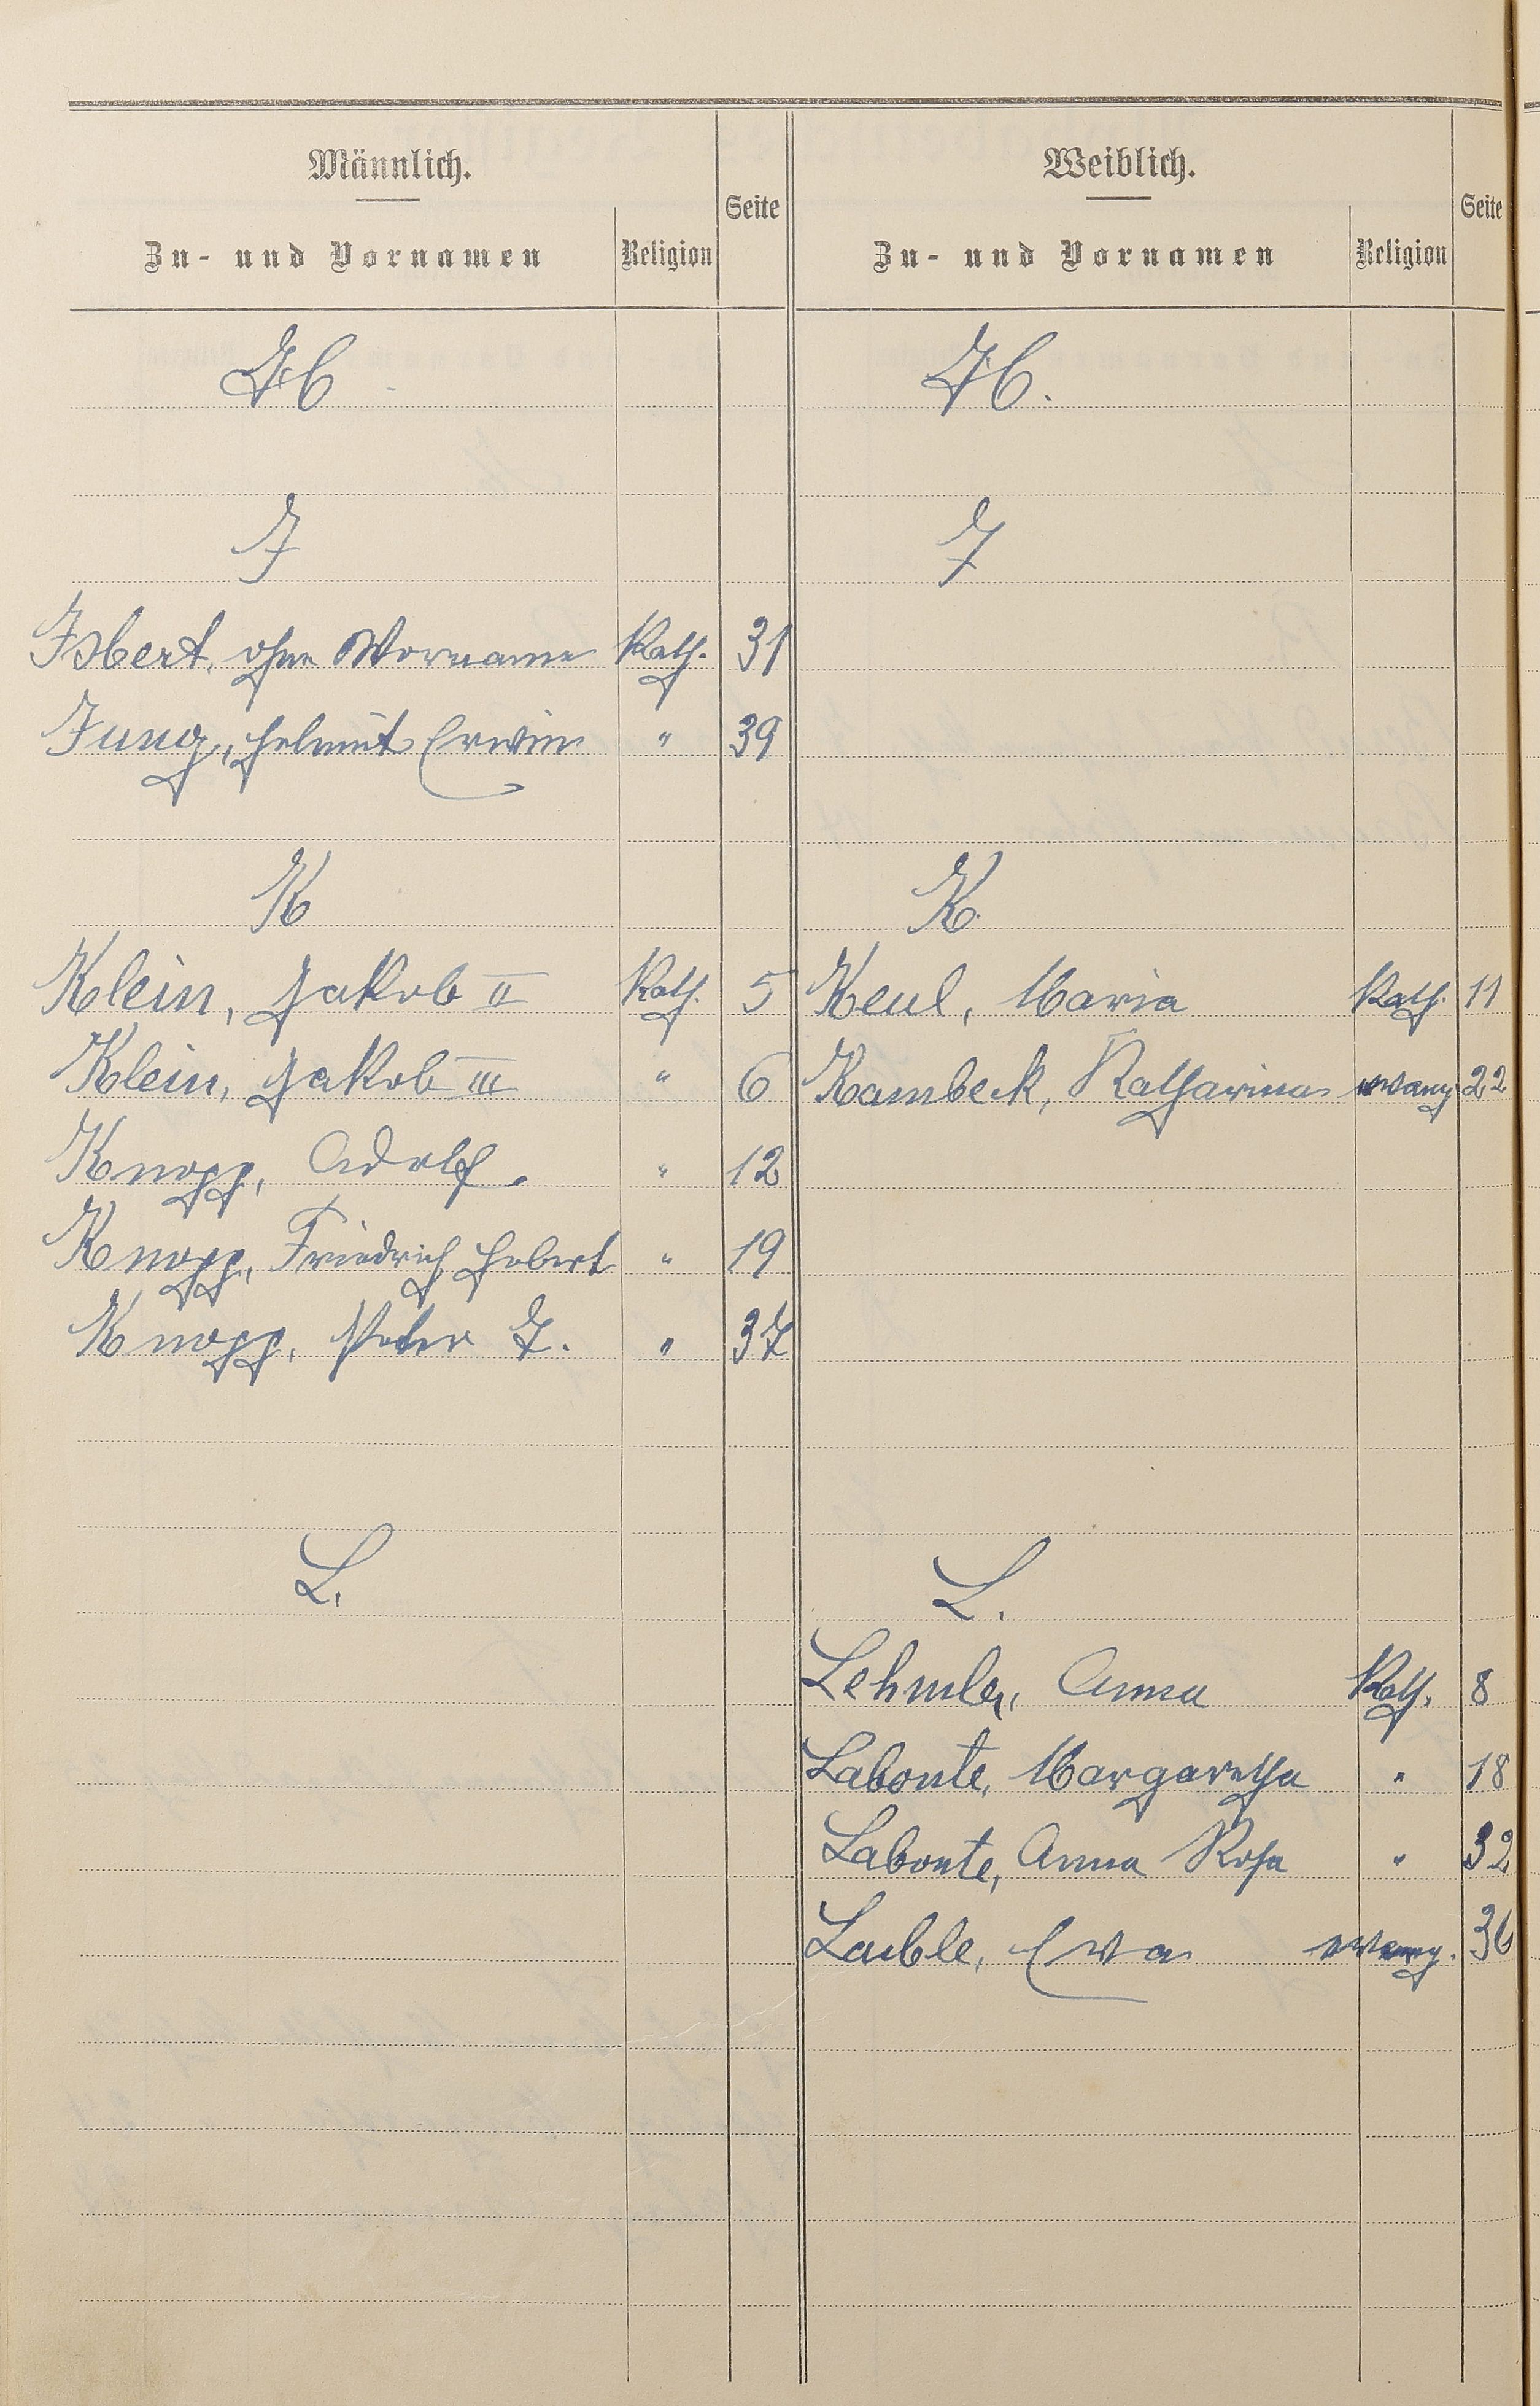 Männlich.
Zu- und Vornamen Religion Seite
H
J
Isbert, ohne Vorname Kath. 31
Jung, Helmut Erwin " 39
K
Klein, Jakob II Kath. 5
Klein, Jakob III " 6
Knopp, Adolf " 12
Knopp, Friedrich Hubert " 19
Knopp, Peter J. " 37
L.
Weiblich.
Zu- und Vornamen Religion Seite
H.
J
K.
Keul, Maria Kath. 11
Kambeck, Katharina evang 22
L.
Lehmler, Anna Kath. 8
Labonte, Margaretha " 18
Labonte, Anna Rosa " 32
Lauble, Eva evang. 36